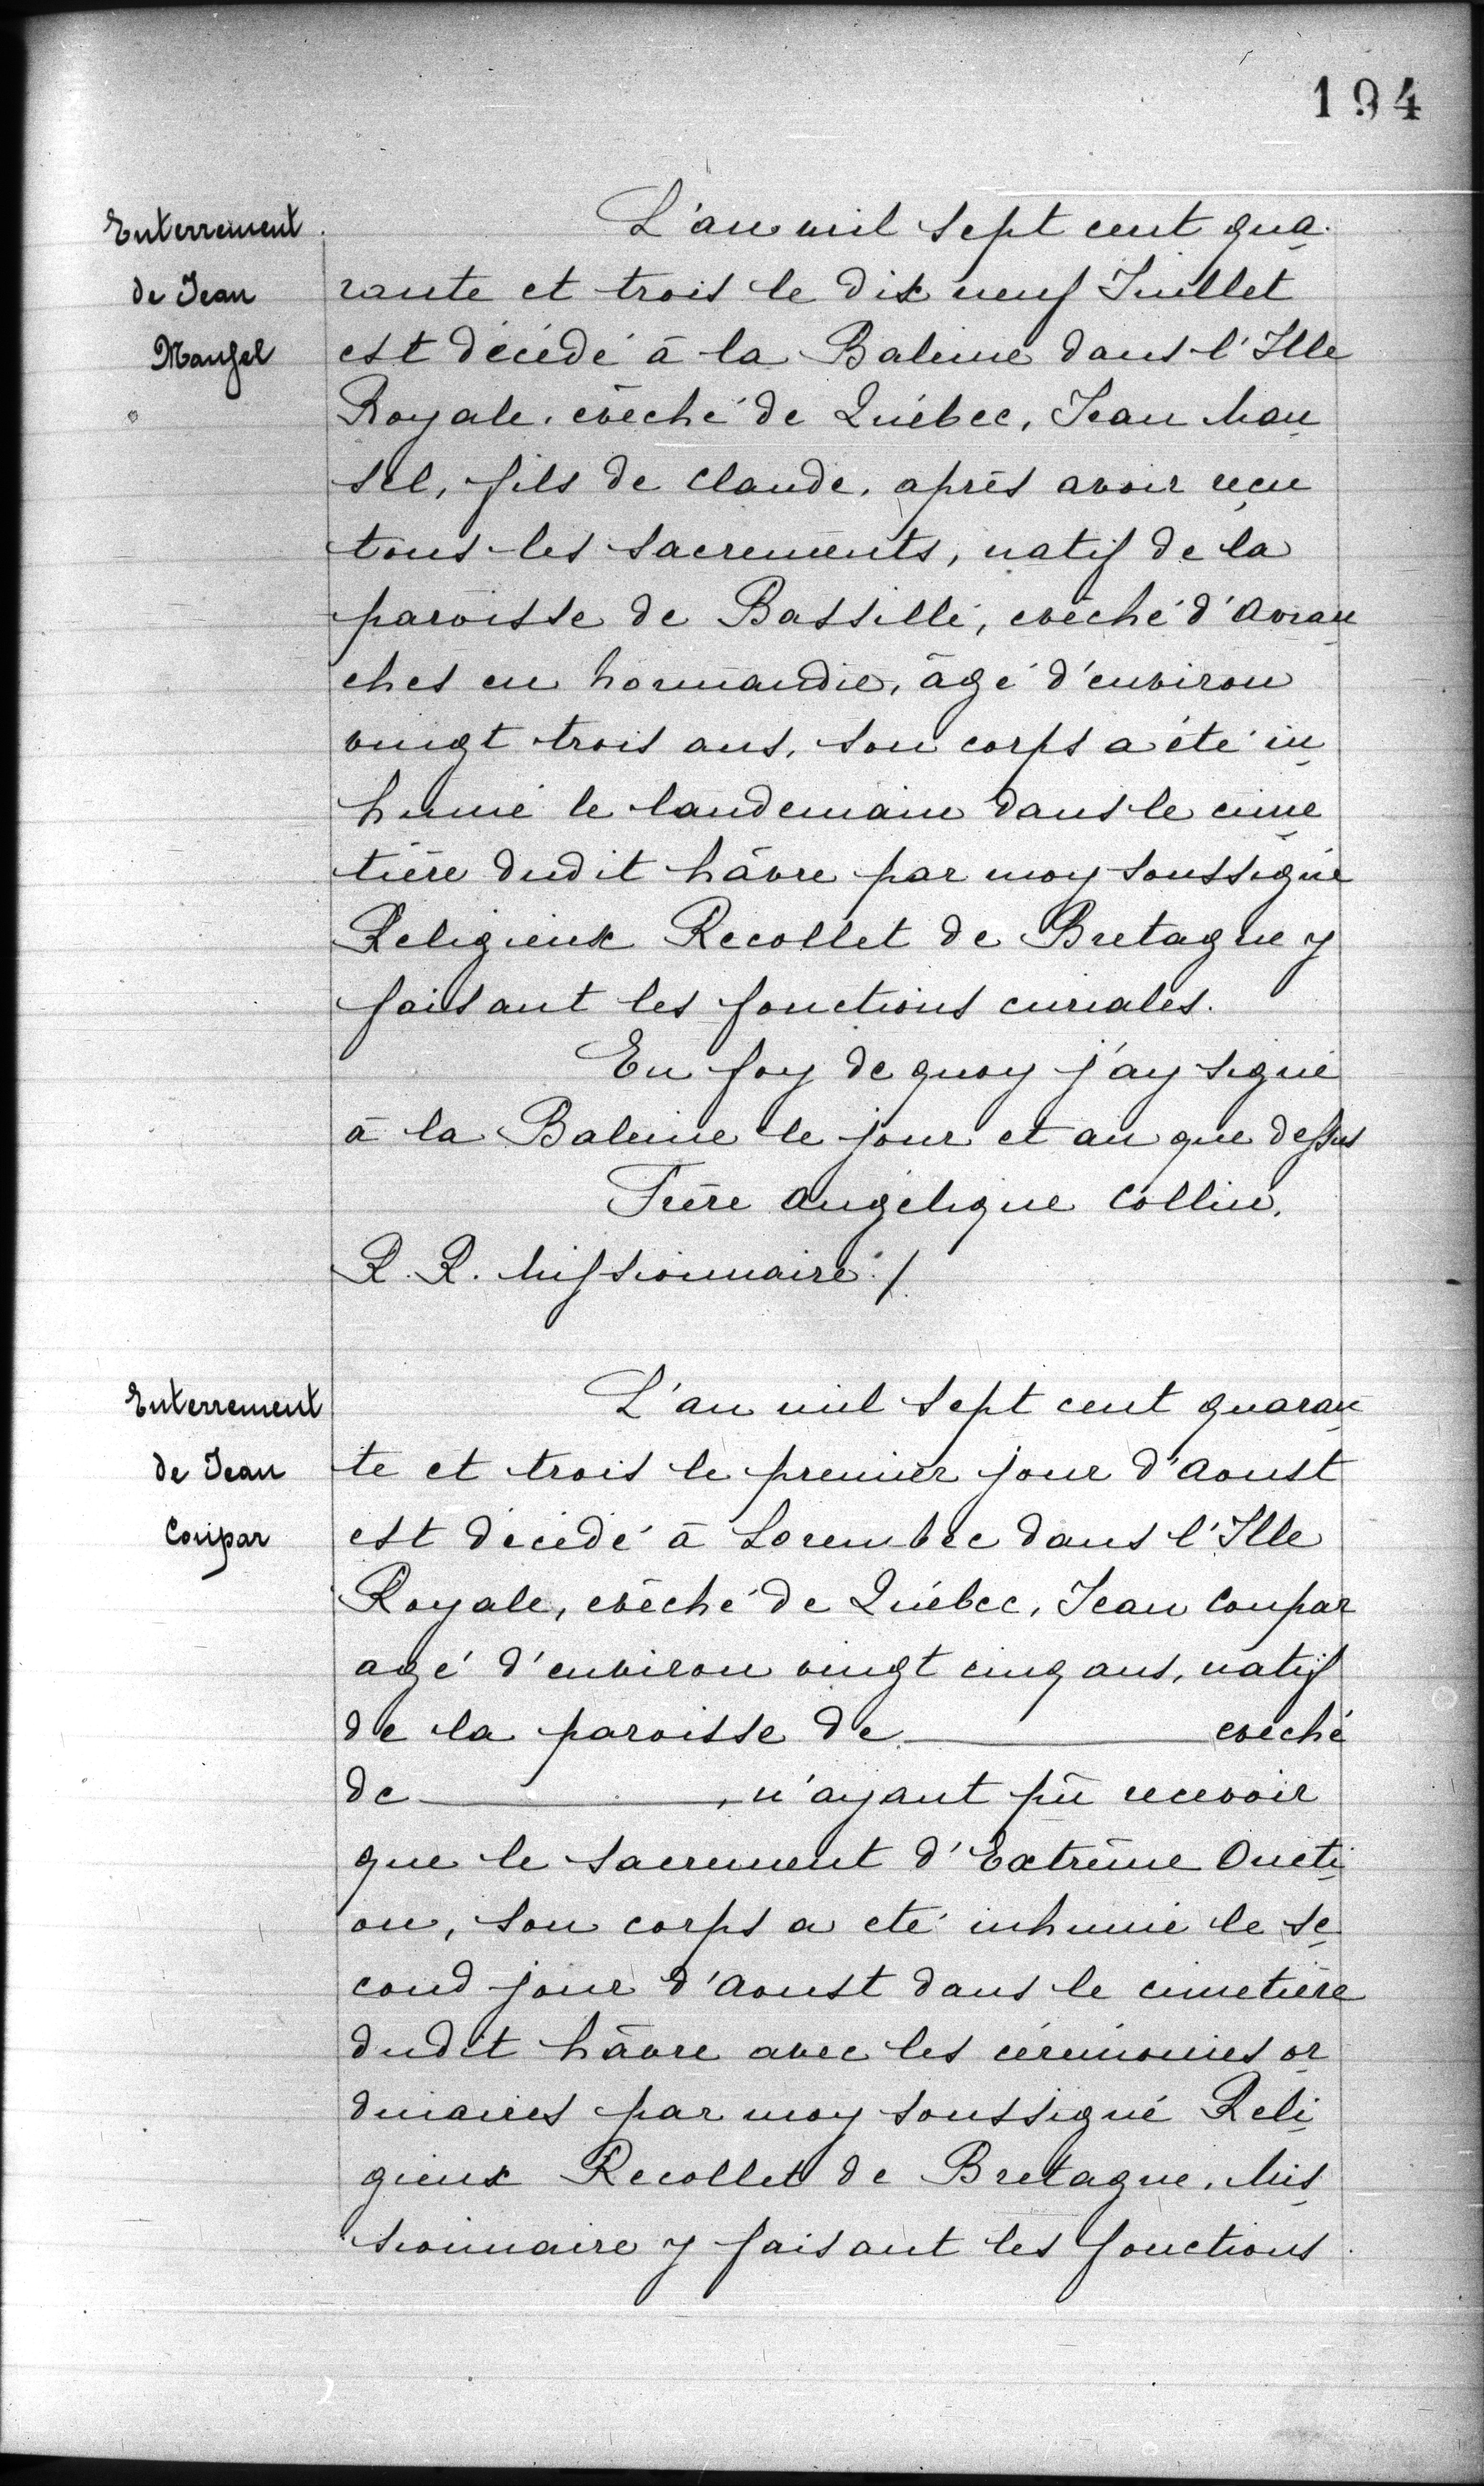 194
Enterrement
de Jean
Mansel
L'an mil sept cent qua
rante et trois le dix neuf Juillet
est décédé à la Baleine dans l'Isle
Royale, evêché de Québec, Jean Man
sel, fils de Claude, après avoir reçu
tous les sacrements, natif de la
paroisse de Bassillé, evêché d'Avran
ches en Normandie, âgé d'environ
vingt trois ans, son corps a été in
humé le landemain dans le cime
tière dudit hâvre par moy soussigné
Religieux Recollet de Bretagne y
faisant les fonctions curiales.
En foy de quoy j'ay signé
à la Baleine le jour et an que dessus
Frère Angélique Collin,
R. R. Missionnaire ./.
Enterrement
de Jean
Coupar
L'an mil sept cent quaran
te et trois le premier jour d'Aoust
est décédé à Lorembec dans l'Isle
Royale, evêché de Québec, Jean Coupar
agé d'environ vingt cinq ans, natif
de la paroisse de ______ evêché
de ______, n'ayant pû recevoir
que le sacrement d'Extrême Oncti
on, son corps a eté inhumé le se
cond jour d'Aoust dans le cimetière
dudit hâvre avec les cérémonies or
dinaires par moy soussigné Reli
gieux Recollet de Bretagne, Mis
sionnaire y faisant les fonctions